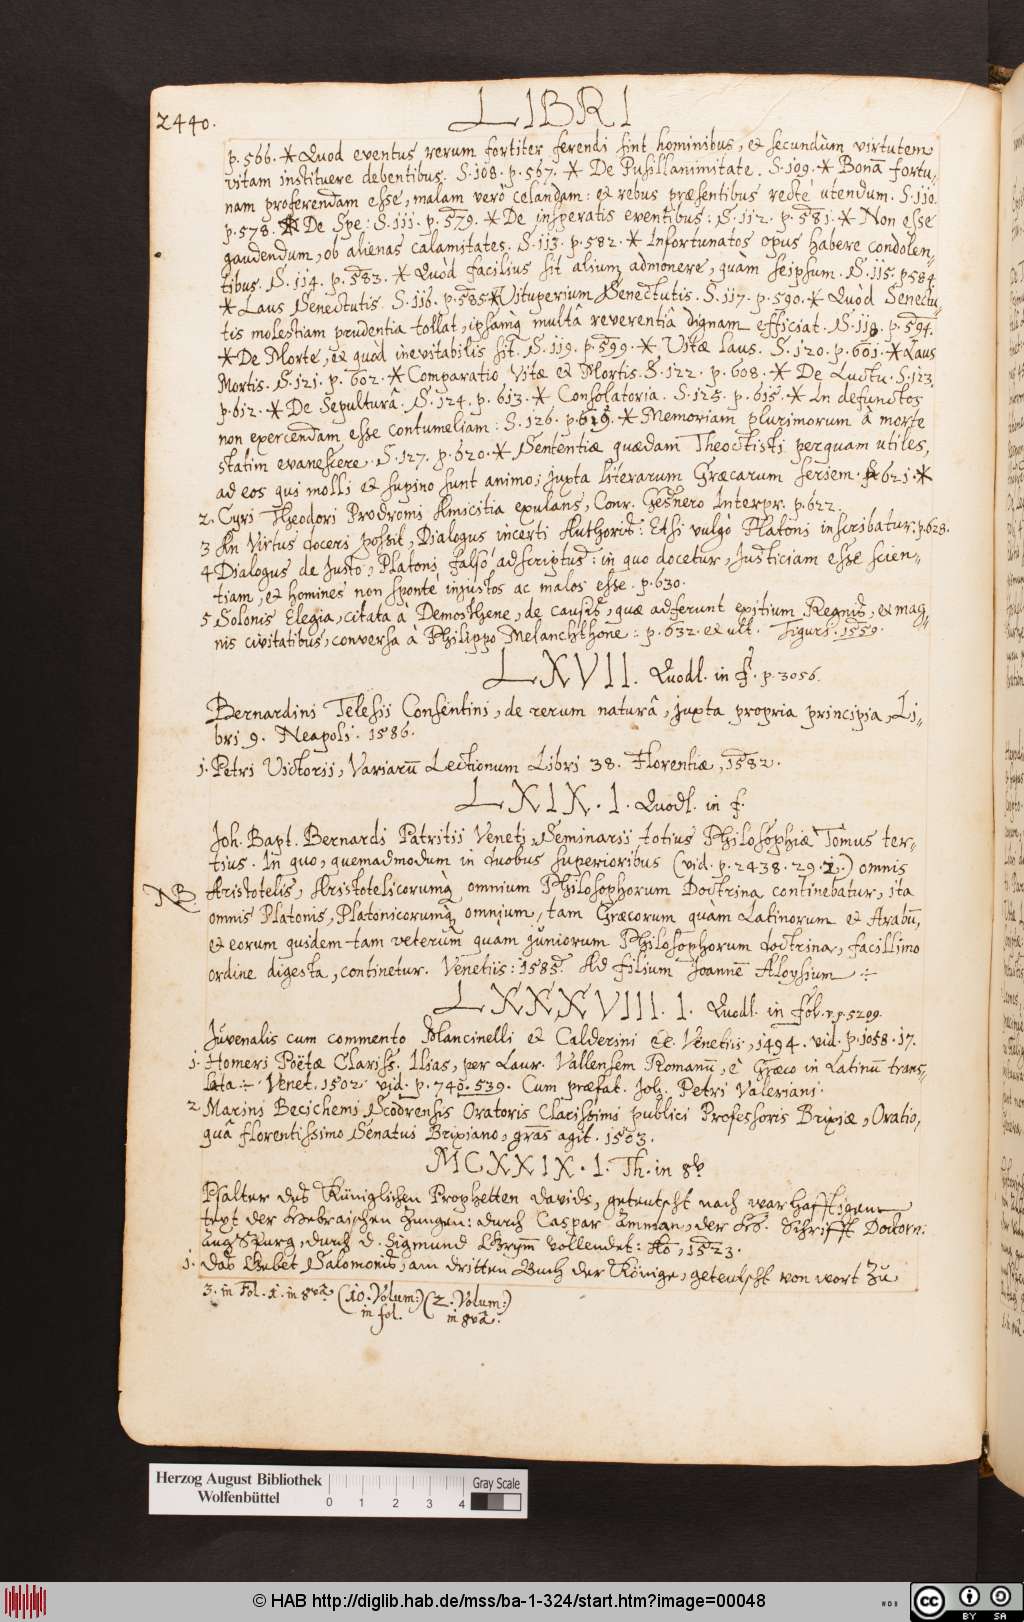 2440.
LIBRI
p. 566. * Quod eventus rerum fortiter ferendi sint hominibus, et secundùm virtutem
vitam instituere debentibus. S. 108. p. 567. * De Pusillanimitate. S. 109. * Bonā fortu,,
nam proferendam esse, malam verò celandam: et rebus præsentibus rectè utendum. S. 110.
p. 578. * De Spe: S. 111. p. 579. * De insperatis eventibus: S. 112. p. 581. * Non esse
gaudendum, ob alienas calamitates. S. 113. p. 582. * Infortunatos opus habere condolen,,
tibus. S. 114. p. 583. * Quòd facilius sit alium admonere, quàm seipsum. S. 115. p 584.
* Laus Senectutis. S. 116. p. 585. * Vituperium Senectutis. S. 117. p. 590. * Quòd Senectu,,
tis molestiam prudentia tollat, ipsamq multâ reverentiâ dignam efficiat. S. 118. p. 594.
* De Morte, et quòd inevitabilis sit. S. 119. p. 599. * Vitæ laus. S. 120. p. 601. * Laus
Mortis. S. 121. p. 602. * Comparatio Vitæ et Mortis. S. 122. p. 608. * De Luctu. S. 123.
p. 612. * De Sepulturâ. S. 124. p. 613. * Consolatoria. S. 125. p. 615. * In defunctos
non exercendam esse contumeliam: S. 126. p. 619. * Memoriam plurimorum à morte
statim evanescere. S. 127. p. 620. * Sententiæ quædam Theoctisti perquam utiles,
ad eos qui molli et supino sunt animo; juxta literarum Græcarum seriem. p 621. *
2. Cyri Theodori Prodromi Amicitia exulans, Conr. Gesnero Interpr. p. 622.
3 An Virtus doceri possit, Dialogus incerti Authoris: Etsi vulgò Platoni inscribatur: p. 628.
4 Dialogus de Justo, Platoni falsò adscriptus: in quo docetur, Justiciam esse scien,,
tiam, et homines non spontè injustos ac malos esse. p. 630.
5 Solonis Elegia, citata à Demosthene, de causis, quæ adferunt exitium Regnis, et mag,,
nis civitatibus, conversa à Philippo Melanchthone: p. 632. et ult. Tiguri. 1559.
LXVII. Quodl. in f. p. 3056.
Bernardini Telesii Consentini, de rerum naturâ, juxta propria principia, Li,,
bri 9. Neapoli. 1586.
1. Petri Victorii, Variarū Lectionum Libri 38. Florentiæ, 1582.
LXIX. 1. Quodl. in f.
Joh. Bapt. Bernardi Patritii Veneti, Seminarii totius Philosophiæ Tomus ter,,
tius. In quo, quemadmodum in duobus superioribus (vid. p. 2438. 29. 1.) omnis
NB Aristotelis, Aristotelicorumq omnium Philosophorum Doctrina continebatur, ita
omnis Platonis, Platonicorumq omnium, tam Græcorum quàm Latinorum et Arabū,
et eorum quidem tam veterum quàm juniorum Philosophorum doctrina, facillimo
ordine digesta, continetur. Venetiis: 1585. Ad filium Joannē Aloysium ÷
LXXXVIII. 1. Quodl. in fol. r. p. 5299.
Juvenalis cum commento Mancinelli et Calderini etc. Venetiis, 1494. vid. p. 1058. 17.
1. Homeri Poëtæ Clariss. Ilias, per Laur. Vallensem Romanū, è Græco in Latinū trans,,
lata ÷ Venet. 1502. vid. p. 740. 539. Cum præfat. Joh. Petri Valeriani.
2 Marini Becichemi Scodrensis Oratoris Clarissimi publici Professoris Brixiæ, Oratio,
quâ florentissimo Senatui Brixiano, gr̄as agit. 1503.
MCXXIX. 1. Th. in 8º
Psalter des Küniglichen Prophetten Davids, geteutscht nach warhafftigem
text der Hebraischen Zungen: durch Caspar Amman, der H. Schrifft Doctorn:
Augspurg, durch D. Sigmund Grym̄ vollendet: Ao, 1523.
1. Das Gebet Salomonis, am dritten Buch der Künige, geteutscht von wort zu
3. in Fol. 1. in 8vâ (10. Volum:) (2. Volum:)
in fol. in 8vâ.
Herzog August Bibliothek
Wolfenbüttel
0 1 2 3 4
Gray Scale
© HAB http://diglib.hab.de/mss/ba-1-324/start.htm?image=00048
cc BY SA